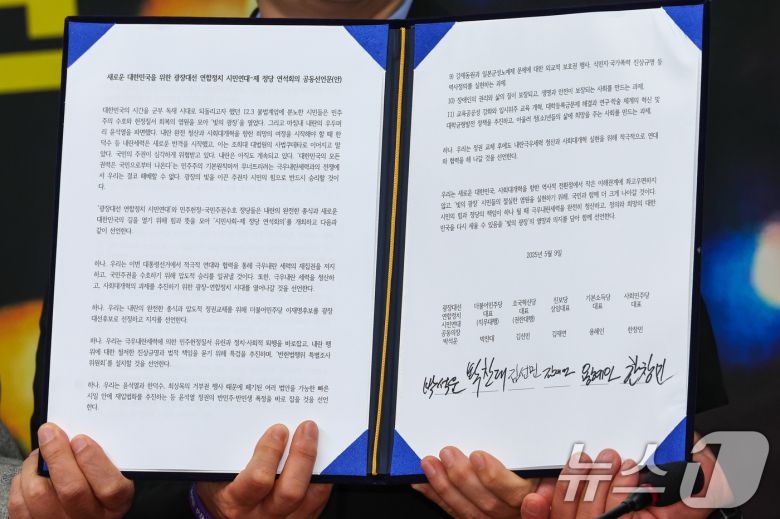 새로운 대한민국을 위한 광장대선 연합정치 시민연대-제 정당 연석회의 공동선언문(안)
대한민국의 시간을 군부 독재 시대로 되돌리고자 했던 12.3 불법계엄에 분노한 시민들은 민주
주의 수호와 헌정질서 회복의 염원을 모아 '빛의 광장'을 열었다. 그리고 마침내 내란의 우두머
리 윤석열을 파면했다. 내란 완전 청산과 사회대개혁을 향한 희망의 여정을 시작해야 할 때 한
덕수 등 내란세력은 새로운 반격을 시작했고, 이는 조희대 대법원의 사법쿠데타로 이어지고 있
있다. 국민의 주권이 심각하게 위협받고 있다. 내란은 아직도 계속되고 있다. '대한민국의 모든
권력은 국민으로부터 나온다'는 민주주의 기본원칙마저 무너뜨리려는 극우내란세력과의 전쟁에
서 우리는 결코 패배할 수 없다. 광장의 빛을 이끈 주권자 시민의 힘으로 반드시 승리할 것이
다.
'광장대선 연합정치 시민연대'와 민주헌정-국민주권수호 정당들은 내란의 완전한 종식과 새로운
대한민국의 길을 열기 위해 힘과 뜻을 모아 '시민사회-제 정당 연석회의'를 개최하고 다음과
같이 선언한다.
하나. 우리는 이번 대통령선거에서 적극적 연대와 협력을 통해 극우내란 세력의 재집권을 저지
하고, 국민주권을 수호하기 위해 압도적 승리를 일궈낼 것이다. 또한, 극우내란 세력을 청산하
고, 사회대개혁의 과제를 추진하기 위한 광장-연합정치 시대를 열어나갈 것을 선언한다.
하나. 우리는 내란의 완전한 종식과 압도적 정권교체를 위해 더불어민주당 이재명후보를 광장
대선후보로 선정하고 지지를 선언한다.
하나. 우리는 극우내란세력에 의한 민주헌정질서 유린과 정치·사회적 퇴행을 바로잡고, 내란 행
위에 대한 철저한 진상규명과 법적 책임을 묻기 위해 특검을 추진하며, '반헌법행위 특별조사
위원회'를 설치할 것을 선언한다.
하나. 우리는 윤석열과 한덕수, 최상목의 거부권 행사 때문에 폐기된 여러 법안을 가능한 빠른
시일 안에 재입법화를 추진하는 등 윤석열 정권의 반민주·반민생 폭정을 바로 잡을 것을 선언
한다.
9) 강제동원과 일본군성노예제 문제에 대한 외교적 보호권 행사, 식민지·국가폭력 진상규명 등
역사정의를 실현하는 과제.
10) 장애인의 권리와 삶의 질이 보장되고, 생명과 안전이 보장되는 사회를 만드는 과제.
11) 교육공공성 강화와 입시위주 교육 개혁, 대학등록금문제 해결과 연구·학술 체계의 혁신 및
대학균형발전 정책을 추진하고, 아울러 청(소)년들의 삶에 희망을 주는 사회를 만드는 과제.
하나. 우리는 정권 교체 후에도 내란극우세력 청산과 사회대개혁 실현을 위해 적극적으로 연대
와 협력을 해 나갈 것을 선언한다.
우리는 새로운 대한민국, 사회대개혁을 향한 역사적 전환점에서 작은 이해관계에 좌고우면하지
않고, '빛의 광장' 시민들의 절실한 염원을 실현하기 위해, 국민과 함께 더 크게 나아갈 것이다.
시민의 힘과 정당의 책임이 하나 될 때 극우내란세력을 완전히 청산하고, 정의와 희망의 대한
민국을 다시 세울 수 있음을 '빛의 광장'의 열망과 의지를 담아 함께 선언한다.
2025년 5월 9일
광장대선 더불어민주당 조국혁신당 진보당 기본소득당 사회민주당
연합정치 대표 대표 상임대표 대표 대표
시민연대 (직무대행) (권한대행)
공동의장
박석운 박찬대 김선민 김재연 용혜인 한창민
박석운 박찬대 김선민 김재연 용혜인 한창민
뉴스